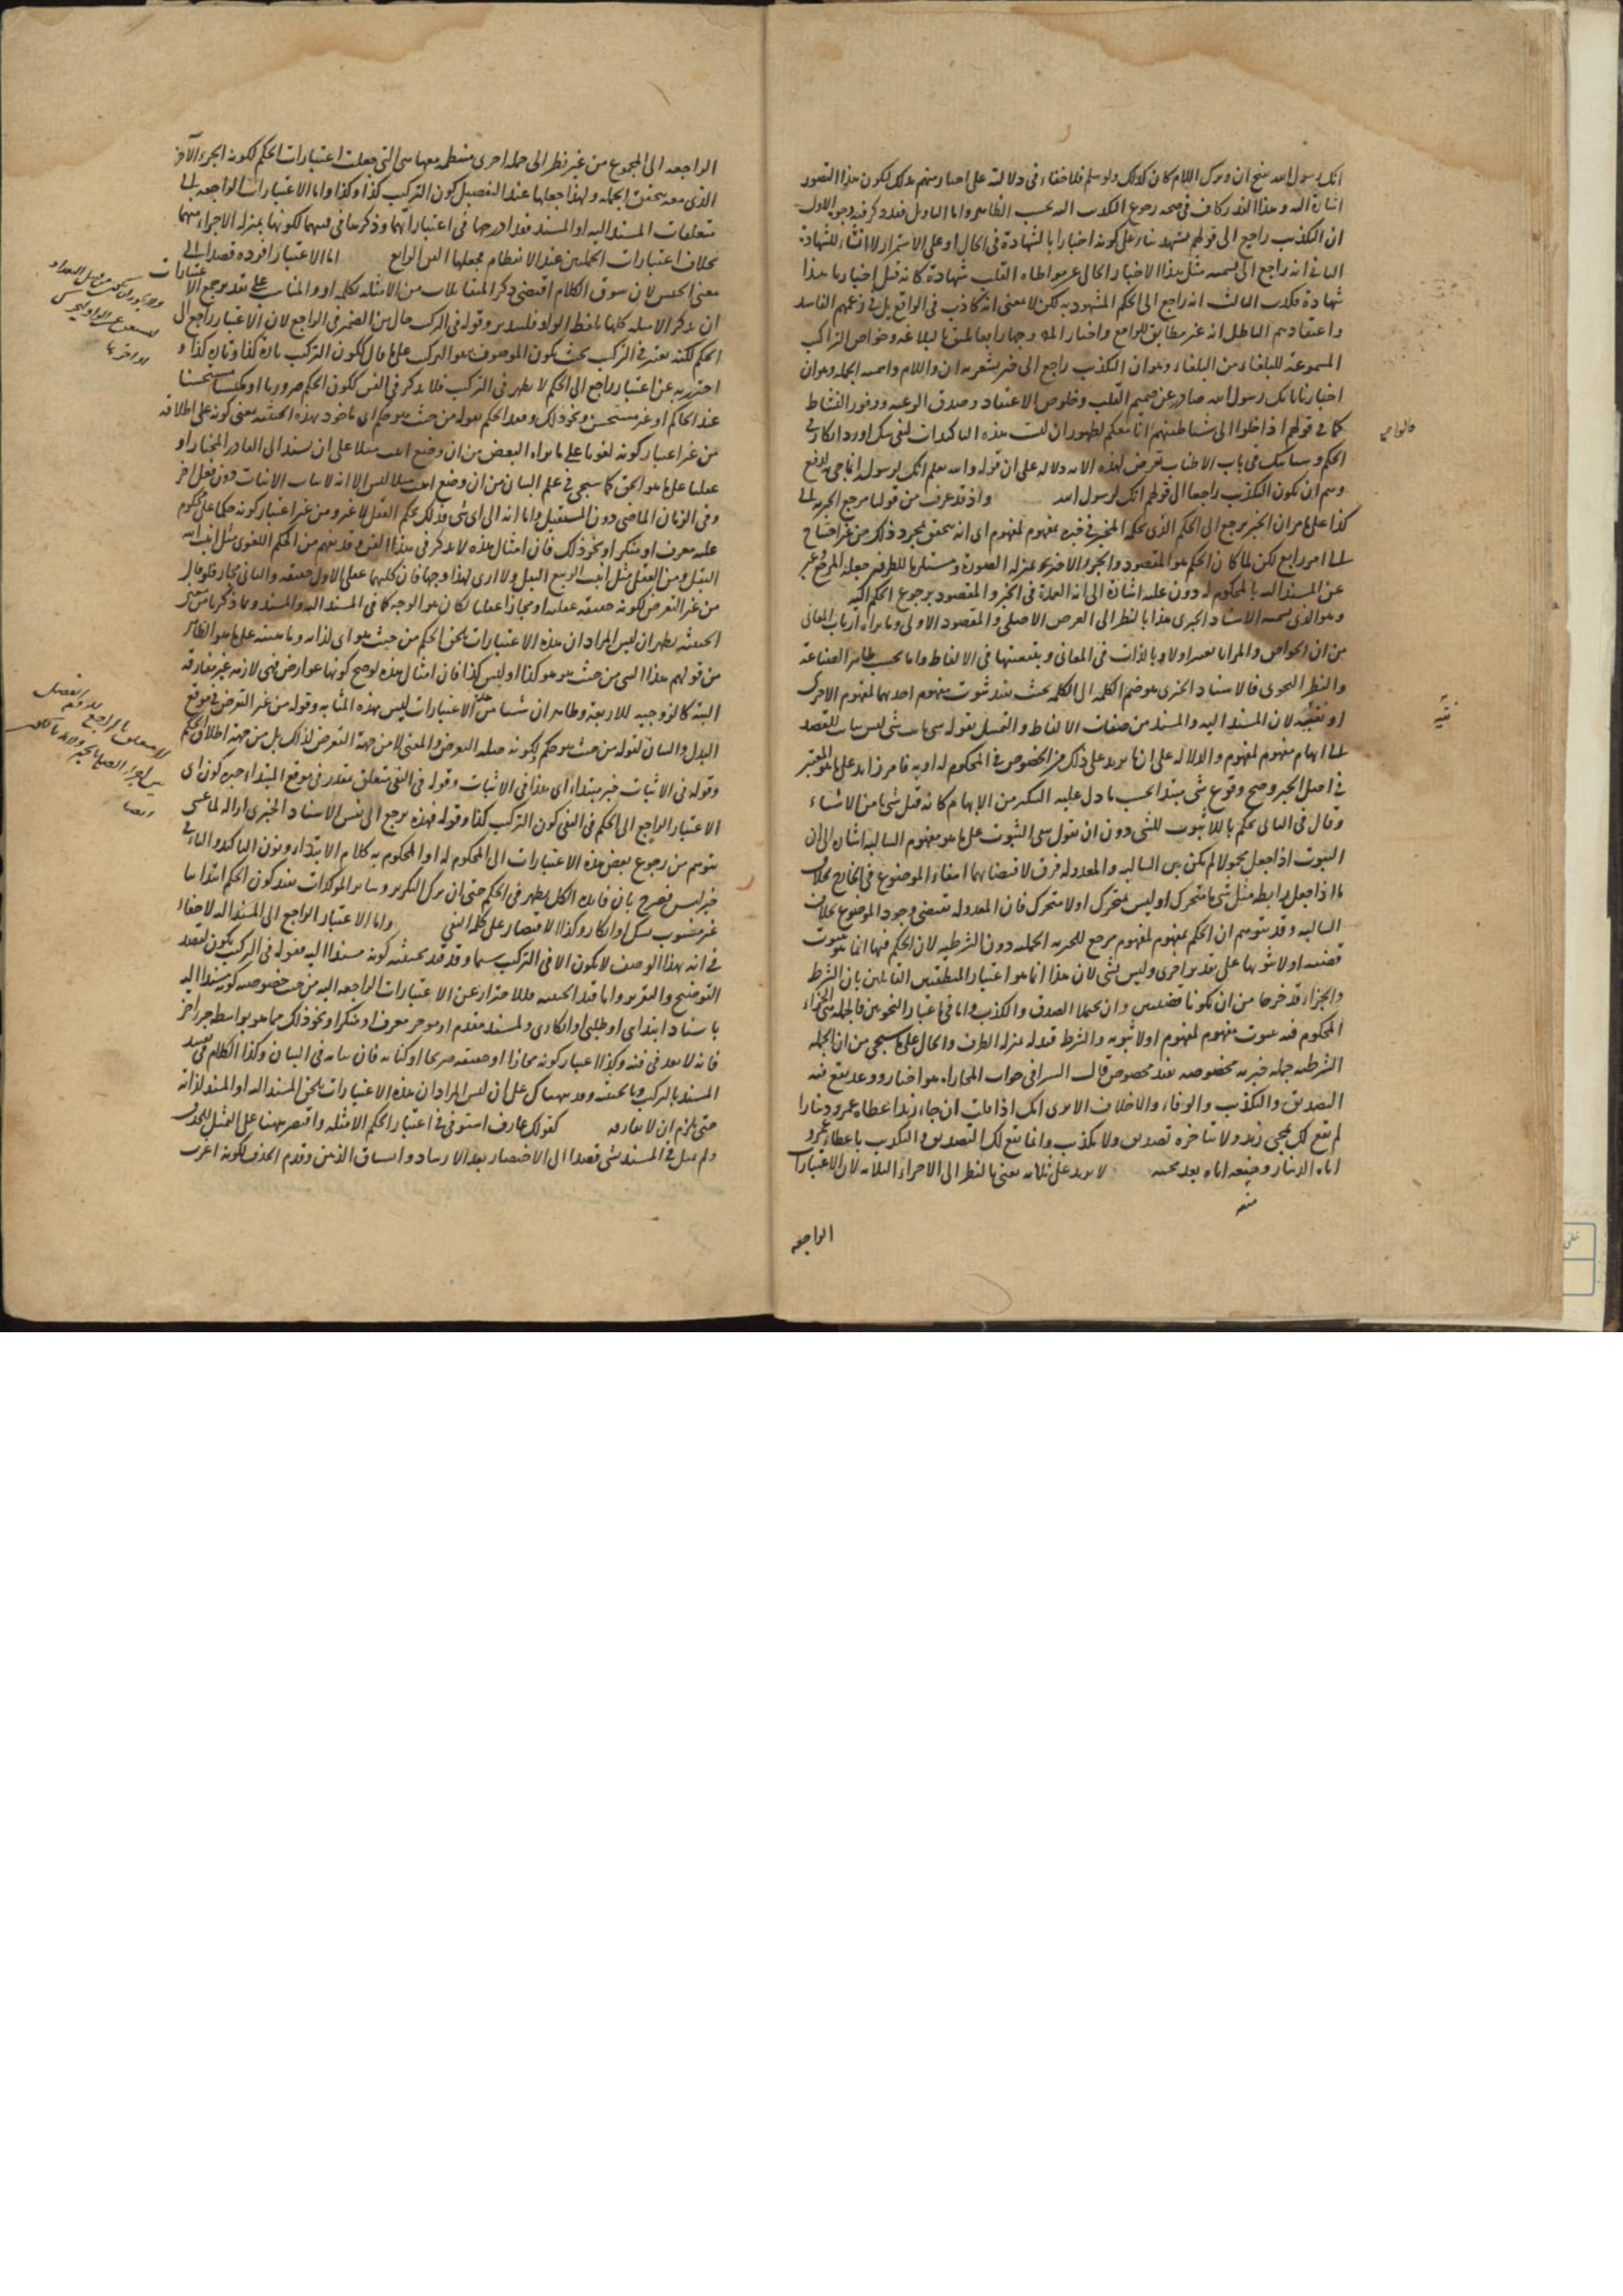 انك رسول الله ينتج ان وترك اللام كان كذلك ولو سلم فلا خفاء في دلالته على اخبار منهم بذلك ليكون هذا المقصود
اشارة اليه وهذا القدر كاف في صحة رجوع التكذيب اليه بحسب الظاهر واما التاويل فقد ذكر فيه وجوه الاول
ان التكذيب راجع الى قولهم نشهد بناء على كونه اخبارا بالشهادة في الحال او على الاستمرار لا انشاء للشهادة
الثاني انه راجع الى تسمية مثل هذا الاخبار الخالي عن مواطاة القلب شهادة كانه قيل اخبارنا هذا
شهادة فكذب الثالث انه راجع الى الحكم المشهود به لكن لا بمعنى انه كاذب في الواقع بل في زعمهم الفاسد
واعتقادهم الباطل انه غير مطابق للواقع واختار وجها رابعا يليق بالبلاغة وخواص التراكب
المسموعة للبلغاء من البلغاء وهو ان التكذيب راجع الى خبر يشعر به ان واللام واسمية الجملة وهو ان
اخبارنا بانك رسول الله صادر عن صميم القلب وخلوص الاعتقاد وصدق الرغبة ووفور النشاط
كما في قولهم اذا خلوا الى شياطينهم انا معكم لظهور ان ليست هذه التاكيدات لنفي شك او رد انكار في
الحكم وسياتيك في باب الاطناب تعرض لهذه الآية دلالة على ان قوله والله يعلم انك لرسوله انما جيء لدفع
وهم ان يكون التكذيب راجعا الى قولهم انك لرسول الله واذ قد عرفت من قولنا مرجع الخبرية الى
كذا على ما مر ان الخبر يرجع الى الحكم الذي يحكمه المخبر في خبره بمفهوم لمفهوم اي انه يتحقق بمجرد ذلك من غير احتياج
الى امر رابع لكن لما كان الحكم هو المقصود والجزء الاخير بمنزلة الصورة ومستلزما للطرفين جعله المرجع وعبر
عن المسند اليه بالمحكوم له دون عليه اشارة الى انه العمدة في الخبر والمقصود برجوع الحكم اليه
وهو الذي نسميه الاسناد الخبري هذا بالنظر الى الغرض الاصلي والمقصود الاولى وما يراه ارباب المعاني
من ان الخواص والمزايا تعتبر اولا وبالذات في المعاني وبتبعيتها في الالفاظ واما بحسب ظاهر الصناعة
والنظر النحوي فالاسناد الخبري هو ضم الكلمة الى الكلمة بحيث يفيد ثبوت مفهوم احدهما لمفهوم الاخرى
او نفيه لان المسند اليه والمسند من صفات الالفاظ والتمثيل بقوله شيء ثابت شيء ليس بثابت للقصد
الى ابهام مفهوم لمفهوم والدلالة على ان ما يزيد على ذلك من الخصوص في المحكوم له او به فامر زائد على ما هو المعتبر
في اصل الخبر وصح وقوع شيء مبتدا بحسب ما دل عليه التنكير من الابهام كانه قيل شيء ما من الاشياء
وقال في الثاني يحكم باللاثبوت للشيء دون ان يقول بنفي الثبوت على ما هو مفهوم السالبة اشارة الى ان
الثبوت اذا جعل محمولا لم يكن بين السالبة والمعدولة فرق لاقتضائهما انتفاء الموضوع في الخارج بخلاف
ما اذا جعل رابطة مثل شيء ما متحرك او ليس بمتحرك او لا متحرك فان المعدولة تقتضي وجود الموضوع بخلاف
السالبة وقد يتوهم ان الحكم بمفهوم لمفهوم مرجع للخبرية الحملية دون الشرطية لان الحكم فيها انما هو بثبوت
قضية او لا ثبوتها على تقدير اخرى وليس بشيء لان هذا انما هو اعتبار المنطقيين القائلين بان الشرط
والجزاء قد خرجا من ان يكونا قضيتين وان يحتملا الصدق والكذب واما في اعتبار النحويين فالجملة هي الجزاء
المحكوم فيه بثبوت مفهوم لمفهوم اولا ثبوته والشرط قيد له بمنزلة الظرف والحال على ما سيجيء من ان الجملة
الشرطية جملة خبرية مخصوصة بقيد مخصوص قال السيرافي جواب المجازاة هو اخبار ووعد يقع فيه
التصديق والتكذيب والوفاء والاخلاف الا ترى انك اذا قلت ان جاء زيد اعطاه عمرو دينارا
لم يقع لك بمجيء زيد ولا بتاخره تصديق ولا تكذيب وانما يقع لك التصديق او التكذيب باعطاء عمرو
اياه الدينار ومنعه اياه بعد مجيئه لا يزيد على ثلثة يعني بالنظر الى الاجزاء الثلاثة لان الاعتبارات
منه
الراجعة
الراجعة الى المجموع من غير نظر الى جملة اخرى منتظمة معها هي التي جعلت اعتبارات الحكم لكونه الجزء الآخر
الذي معه يتحقق الجملة ولهذا جعلها عند التفصيل كون التركيب كذا وكذا واما الاعتبارات الراجعة الى
متعلقات المسند اليه او المسند فقد ادرجها في اعتباراتهما وذكرها في فنيهما لكونها بمنزلة الاجزاء منهما
بخلاف اعتبارات الجملتين عند الانتظام فجعلها الفن الرابع اما الاعتبار افرده قصدا الى
معنى الجنس لان سوق الكلام اقتضى ذكر المتقابلات من الامثلة بكلمة او والمناسب على تقدير جمع الاعتبارات
ان يذكر الامثلة كلها بلفظ الواو فليتدبر وقوله في التركيب حال من الضمير في الراجع لان الاعتبار راجع الى
الحكم لكنه يعتبر في التركيب بحيث يكون الموصوف به هو التركيب على ما قال ككون التركيب تارة كذا وتارة كذا و
احترز به عن اعتبار راجع الى الحكم لا يظهر في التركيب فلا يذكر في الفن ككون الحكم ضروريا او ممكنا مستحسنا
عند الحاكم او غير مستحسن ونحو ذلك وقيد الحكم بقوله من حيث هو حكم اي ماخوذ بهذه الحيثية بمعنى كونه على اطلاقه
من غير اعتبار كونه لغويا على ما يراه البعض من ان وضع انبت مثلا على ان يسند الى القادر المختار او
عقليا على ما هو الحق كما سيجيء في علم البيان من ان وضع انبت مثلا ليس الا انه لاثبات الانبات دون فعل اخر
وفي الزمان الماضي دون المستقبل واما انه الى اي شيء فذلك بحكم العقل لا غير ومن غير اعتبار كونه حكما على محكوم
عليه معرف او منكر او نحو ذلك فان امثال هذه لا يذكر في هذا الفن وقد يفهم من الحكم اللغوي مثل انبت الله
البقل ومن العقلي مثل انبت الربيع البقل ولا ارى لهذا وجها فان كليهما عقلي الاول حقيقة والثاني مجاز فلو قال
من غير التعرض لكونه حقيقة عقلية او مجازا عقليا لكان هو الوجه كما في المسند اليه والمسند وبما ذكرنا من تفسير
الحيثية يظهر ان ليس المراد ان هذه الاعتبارات يلحق الحكم من حيث هو اي لذاته وماهيته على ما هو الظاهر
من قولهم هذا الشيء من حيث هو هو كذا او ليس كذا فان امثال هذه لوضح كونها عوارض فهي لازمة غير مفارقة
البتة كالزوجية للاربعة وظاهر ان شيئا من الاعتبارات ليس بهذه المثابة وقوله من غير التعرض في موقع
البدل والبيان لقوله من حيث هو حكم لكونه صلة العروض والمعنى لا من جهة التعرض لذلك بل من جهة اطلاق الحكم
وقوله في الاثبات خبر مبتداء اي هذا في الاثبات وقوله في النفي متعلق بمقدر في موقع المبتداء خبره كون اي
الاعتبار الراجع الى الحكم في النفي كون التركيب كذا وقوله فهذه يرجع الى نفس الاسناد الخبري ازالة لما عسى
يتوهم من رجوع بعض هذه الاعتبارات الى المحكوم له او المحكوم به كلام الابتداء ونون التاكيد والباء في
خبر ليس فصرح بان فائدة الكل يظهر في الحكم حتى ان ترك التكرير وسائر المؤكدات يفيد كون الحكم ابتدائيا
غير مشوب بشك او انكار وكذا الاقتصار على كلمة النفي واما الاعتبار الراجع الى المسند اليه لا خفاء
في انه بهذا الوصف لا يكون الا في التركيب سيما وقد قيد بحيثية كونه مسندا اليه فقوله في التركيب يكون لقصد
التوضيح والتقرير واما قيد الحيثية فللاحتراز عن الاعتبارات الراجعة اليه من حيث خصوصية كونه مسندا اليه
باسناد ابتدائي او طلبي او انكاري ولمسند مقدم او مؤخر معرف او منكر او نحو ذلك مما هو بواسطة جزء آخر
فانه لا يعد في فنه وكذا اعتبار كونه مجازا او حقيقة صريحا او كناية فان بيانه في البيان وكذا الكلام في تقييد
المسند بالتركيب وبالحيثية وقد نبهناك على ان ليس المراد ان هذه الاعتبارات يلحق المسند اليه او المسند لذاته
حتى يلزم ان لا يفارقه كقولك عارف استوفى في اعتبار الحكم الامثلة واقتصر ههنا على التمثيل للحذف
ولم يمثل في المسند بشيء قصدا الى الاختصار بعد الارشاد وانسياق الذهن وقدم الحذف لكونه اعرف